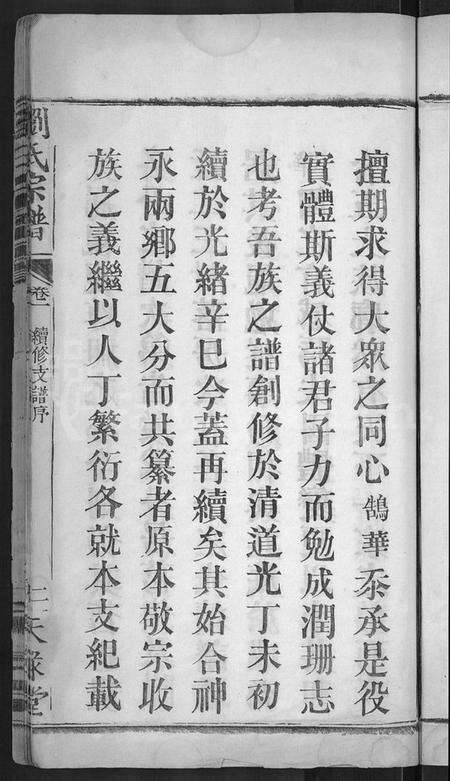 擅期求得大眾之同心鵠華忝承是役
實體斯義仗諸君子力而勉成潤珊志
也考吾族之譜創修於清道光丁未初
續於光緒辛巳今葢再續矣其始合神
永兩鄉五大分而共纂者原本敬宗收
族之義繼以人丁繁衍各就本支紀載
劉氏宗譜
卷一
續修支譜序
堂